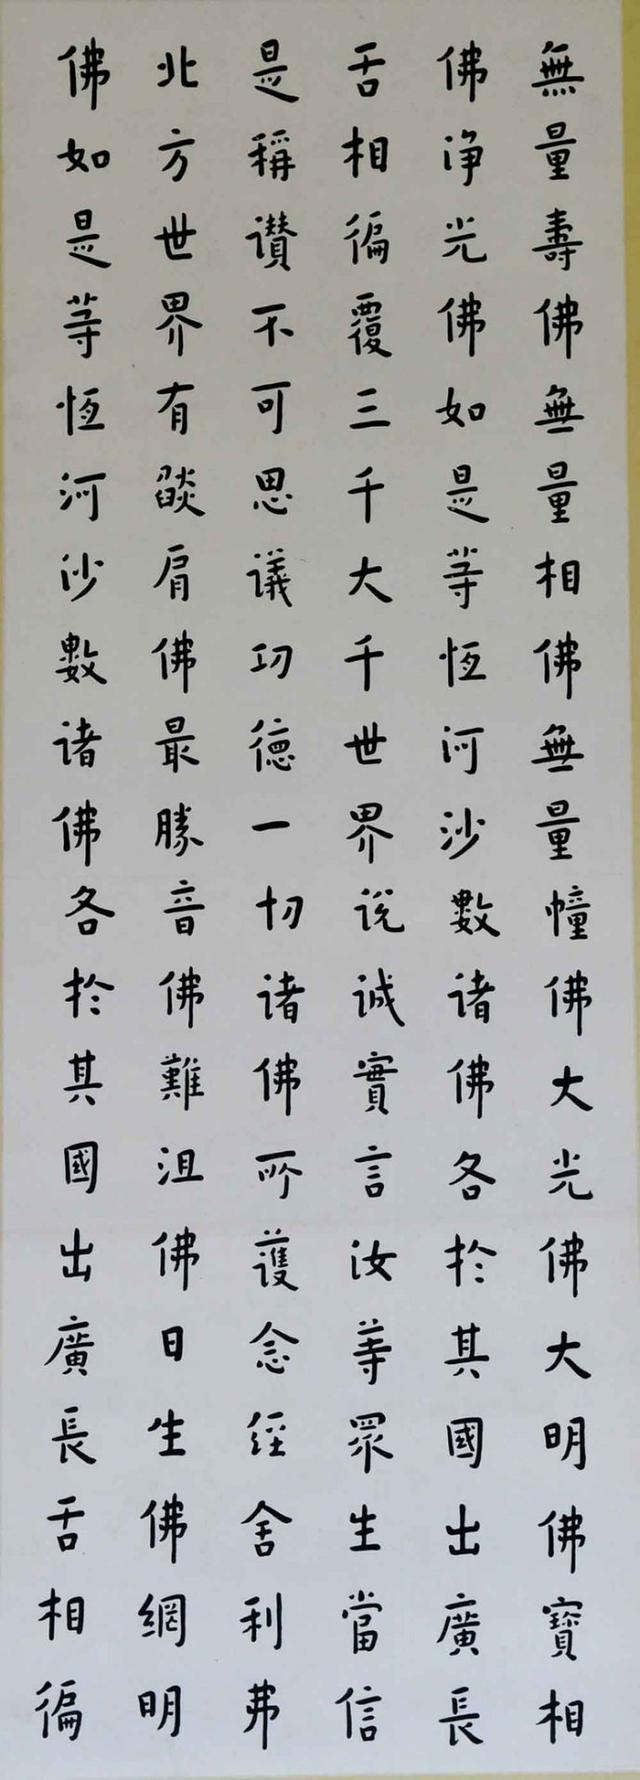 無量壽佛無量相佛無量幢佛大光佛大明佛寶相
佛淨光佛如是等恆河沙數諸佛各於其國出廣長
舌相徧覆三千大千世界說誠實言汝等眾生當信
是稱讚不可思議功德一切諸佛所護念經舍利弗
北方世界有燄肩佛最勝音佛難沮佛日生佛網明
佛如是等恆河沙數諸佛各於其國出廣長舌相徧